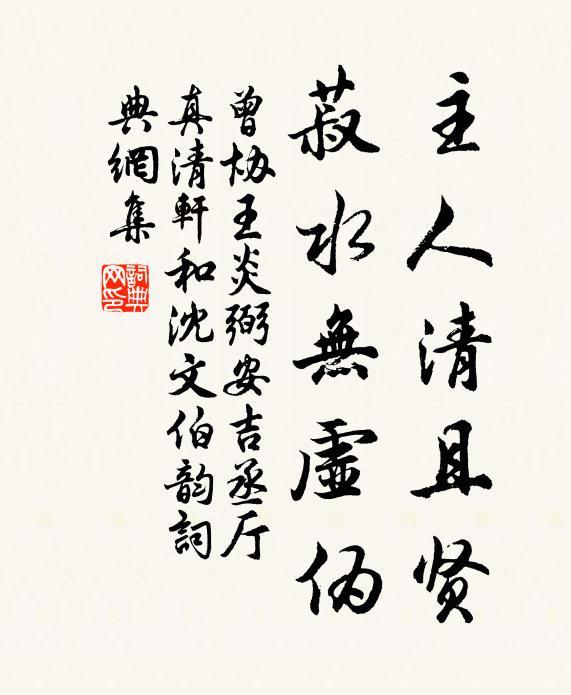 主人清且贤
菽水無虛伪
曾协王炎弼安吉丞厅
真清軒和沈文伯韵詞
典網集
詞典网印